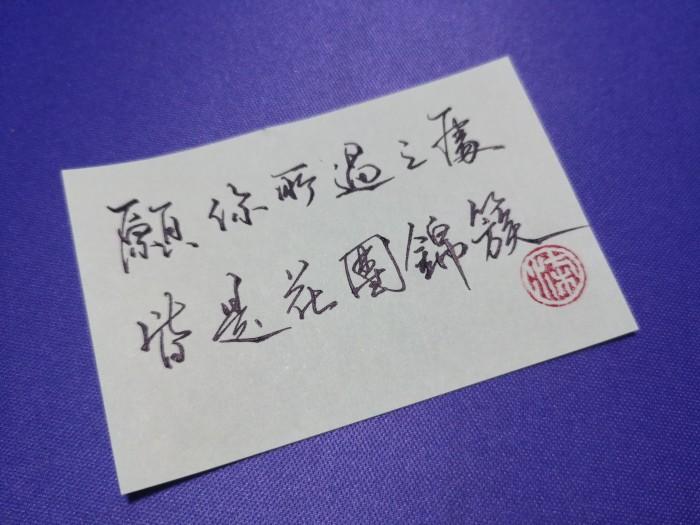 願你所過之處
皆是花團錦簇